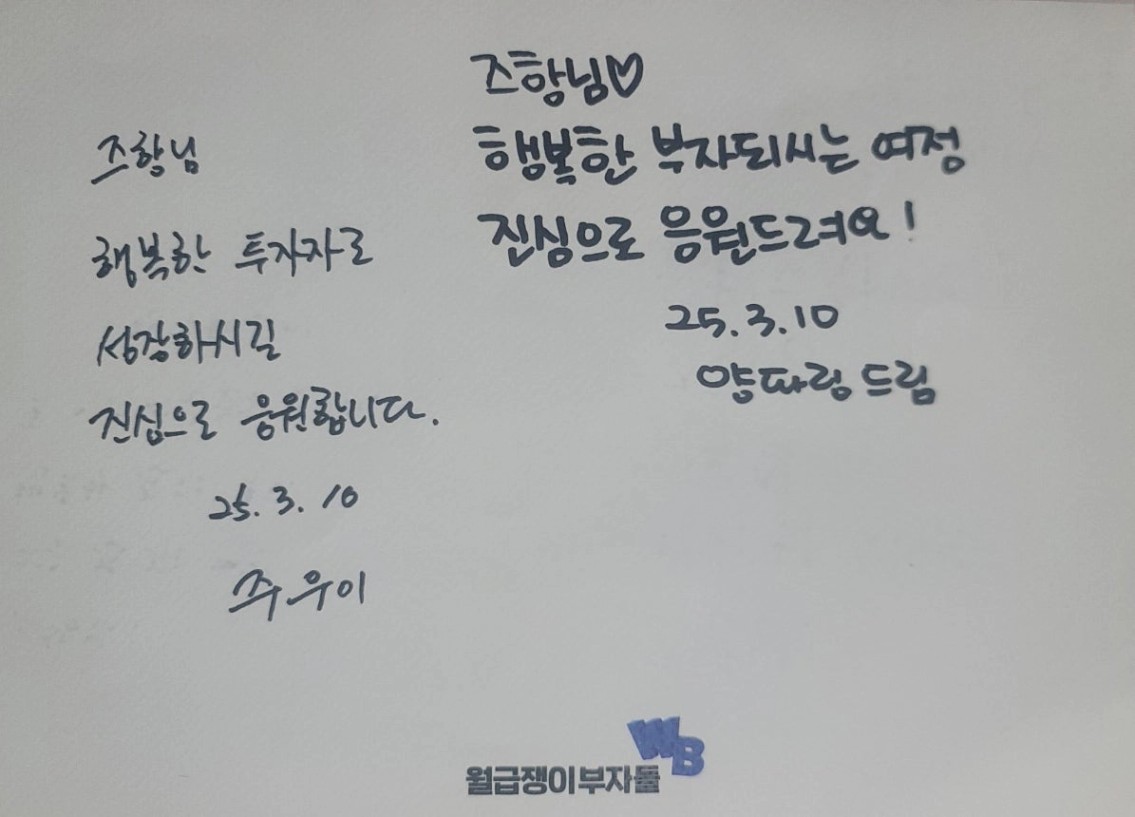 즈항님
행복한 투자자로
성장하시길
진심으로 응원합니다.
25. 3. 10
주우이
즈항님♡
행복한 부자되시는 여정
진심으로 응원드려요!
25.3.10
양파링 드림
WB
월급쟁이부자들